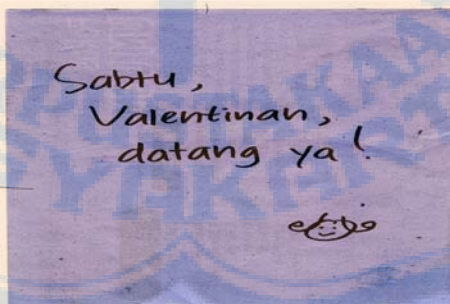 Sabtu,
Valentinan,
datang ya!